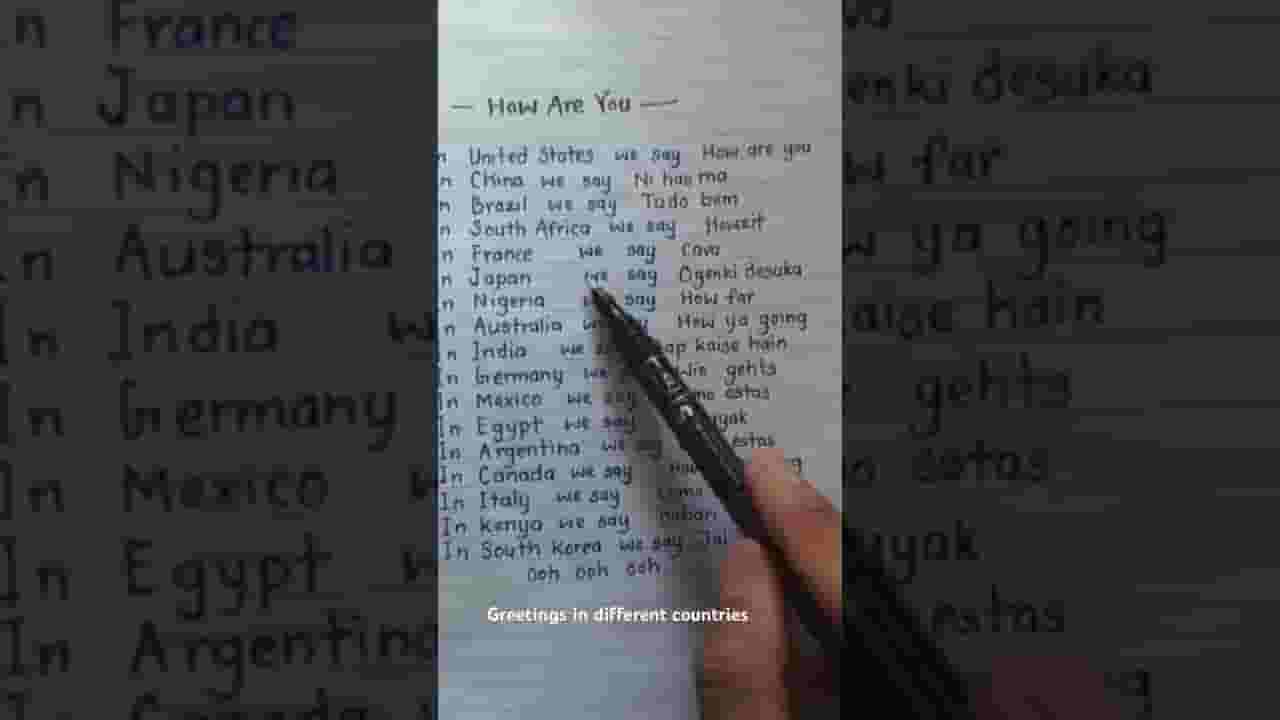 — How Are You —
n United States we say How are you
n China we say Ni hao ma
n Brazil we say Tudo bem
n South Africa we say Howzit
n France we say Cava
n Japan we say Ogenki desuka
n Nigeria say How far
n Australia How ya going
n India we aap kaise hain
In Germany we Wie gehts
In Mexico we say estas
In Egypt we say
In Argentina we say estas
In Canada we say
In Italy we say
In kenya we say
In South korea we say
ooh ooh ooh
Greetings in different countries